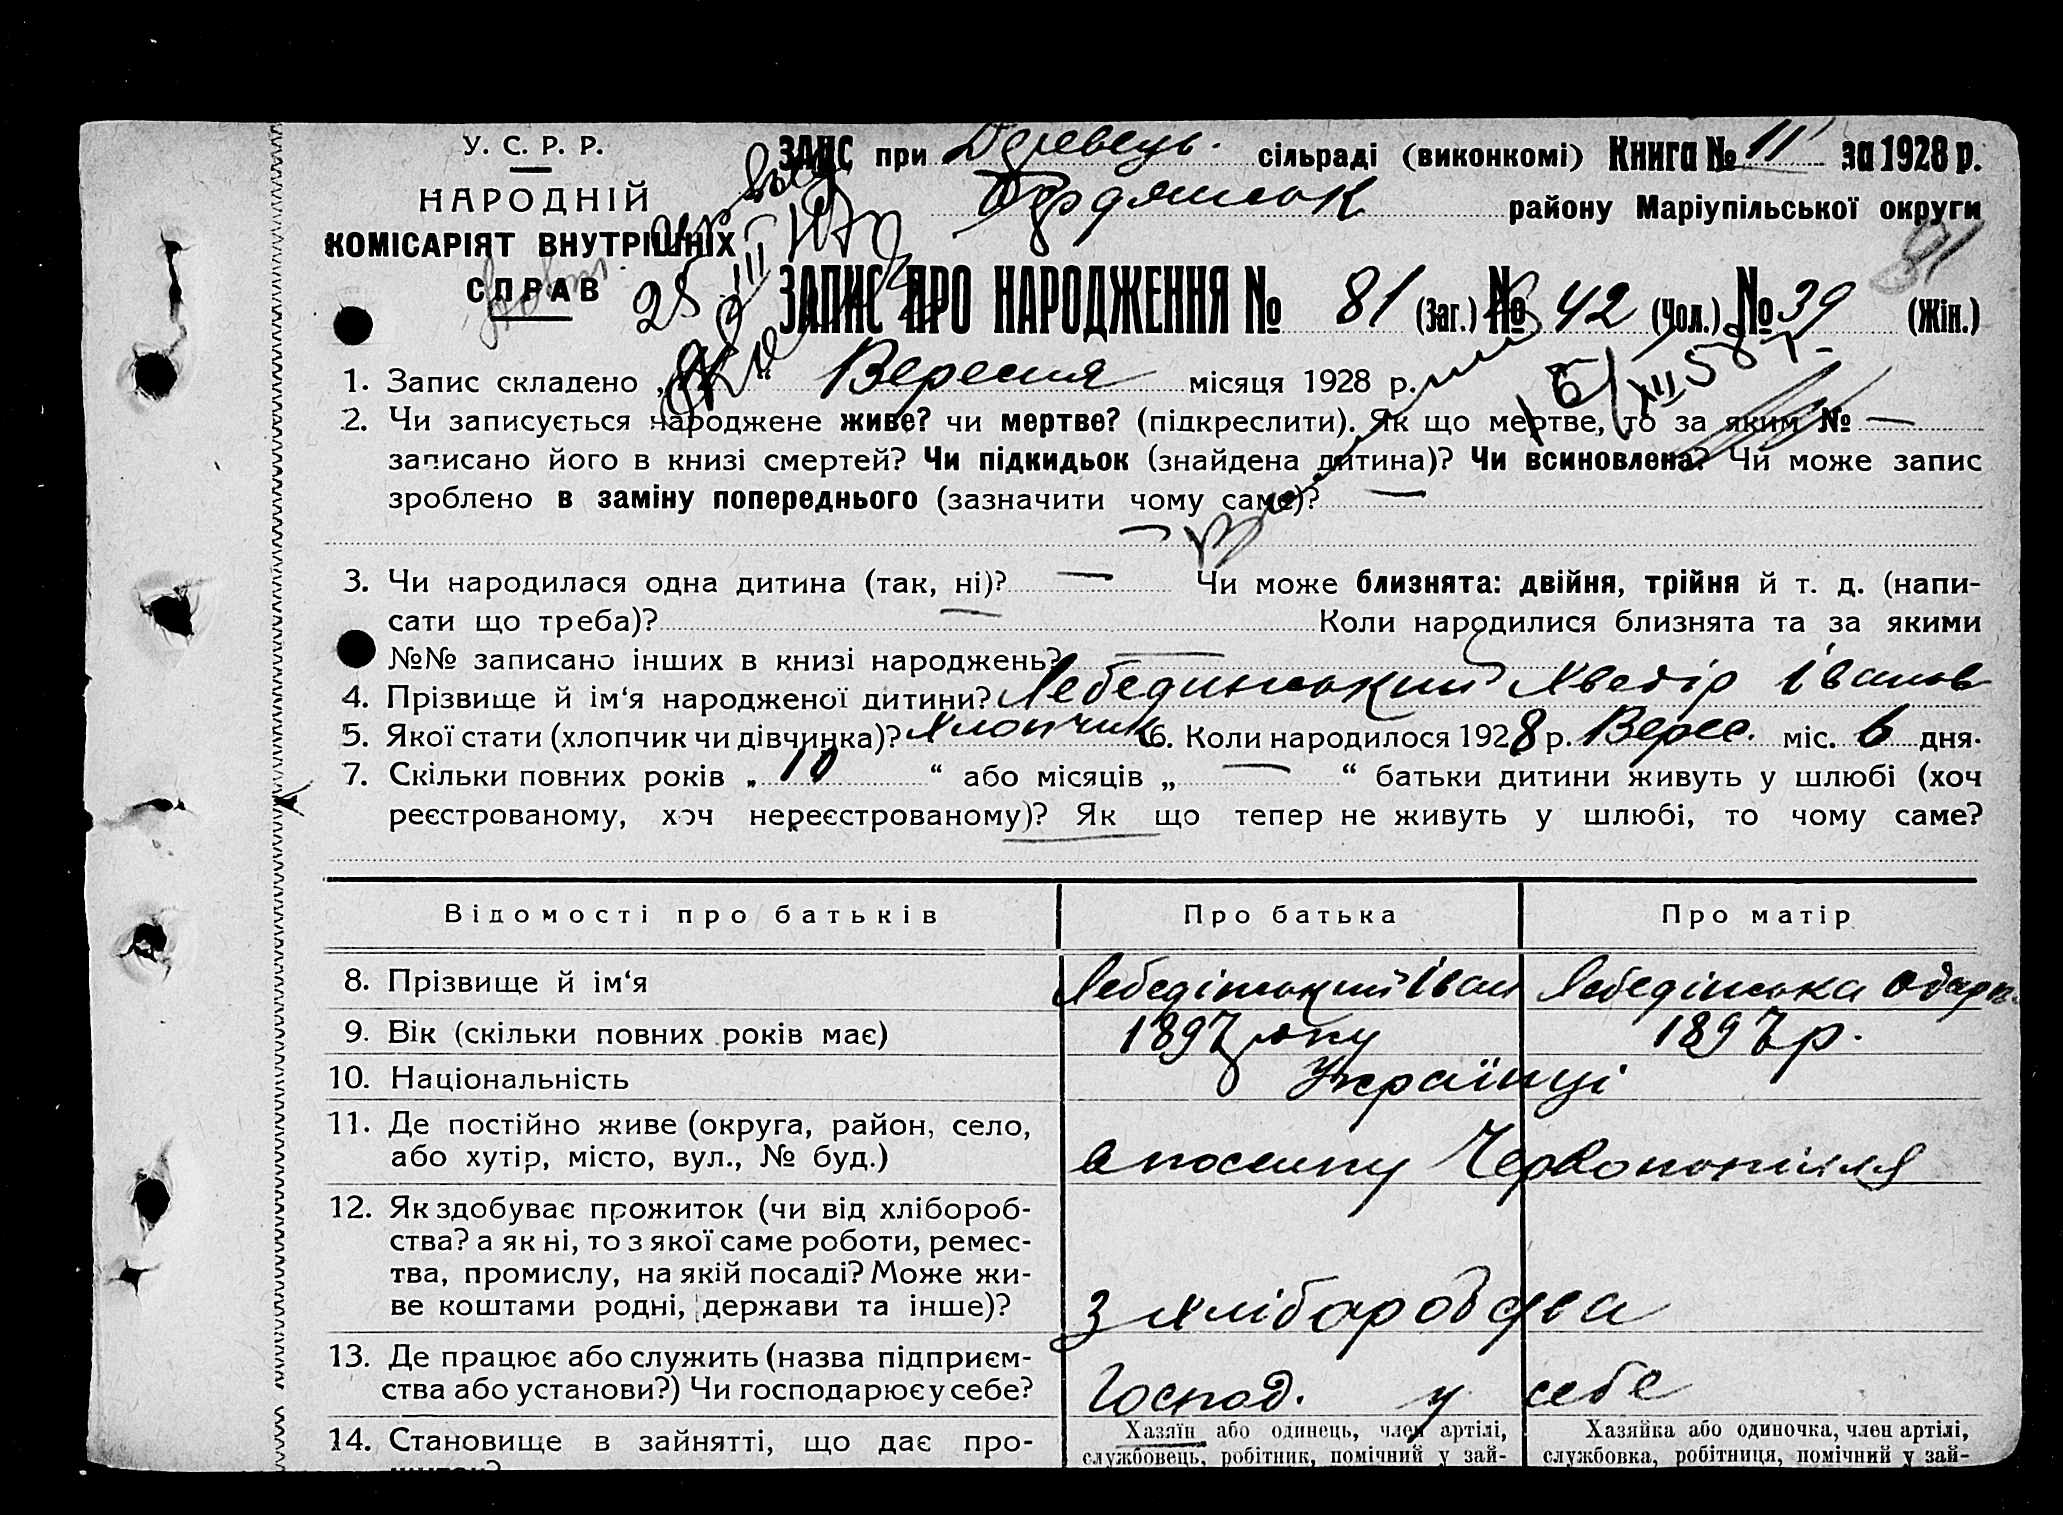 У. С. Р. Р.
НАРОДНІЙ
КОМІСАРІЯТ ВНУТРІШНІХ
СПРАВ
ЗАПИС при Деревець. сільраді (виконкомі) Книга № II за 1928 р.
Бердянськ району Маріупільської округи
81
ЗАПИС ПРО НАРОДЖЕННЯ № 81 (Заг.) № 42 (Чол.) № 39 (Жін.)
1. Запис складено „ “ Вересня місяця 1928 р.
2. Чи записується народжене живе? чи мертве? (підкреслити). Як що мертве, то за яким № —
записано його в книзі смертей? Чи підкидьок (знайдена дитина)? Чи всиновлена? Чи може запис
зроблено в заміну попереднього (зазначити чому саме)? —
—
3. Чи народилася одна дитина (так, ні)? — Чи може близнята: двійня, трійня й т. д. (напи-
сати що треба)? — Коли народилися близнята та за якими
№№ записано інших в книзі народжень? —
4. Прізвище й ім‘я народженої дитини? Лебединський Хведір Іванов
5. Якої стати (хлопчик чи дівчинка)? Хлопчик 6. Коли народилося 1928 р. Верес. міс. 6 дня.
7. Скільки повних років „ 10 “ або місяців „ — “ батьки дитини живуть у шлюбі (хоч
реєстрованому, хоч нереєстрованому)? Як що тепер не живуть у шлюбі, то чому саме?
Відомості про батьків Про батька Про матір
8. Прізвище й ім‘я Лебедінський Іван Лебедінська Одарк
9. Вік (скільки повних років має) 1897 року 1897 р.
10. Національність Українці
11. Де постійно живе (округа, район, село,
або хутір, місто, вул., № буд.) в посилку Червонопілля
12. Як здобуває прожиток (чи від хлібороб-
ства? а як ні, то з якої саме роботи, ремес-
тва, промислу, на якій посаді? Може жи-
ве коштами родні, держави та інше)? З хліборобства
13. Де працює або служить (назва підприєм-
ства або установи?) Чи господарює у себе? Господ. у себе
14. Становище в зайнятті, що дає про- Хазяїн або одинець, член артілі, Хазяйка або одиночка, член артілі,
службовець, робітник, помічний у зай- службовка, робітниця, помічний у зай-